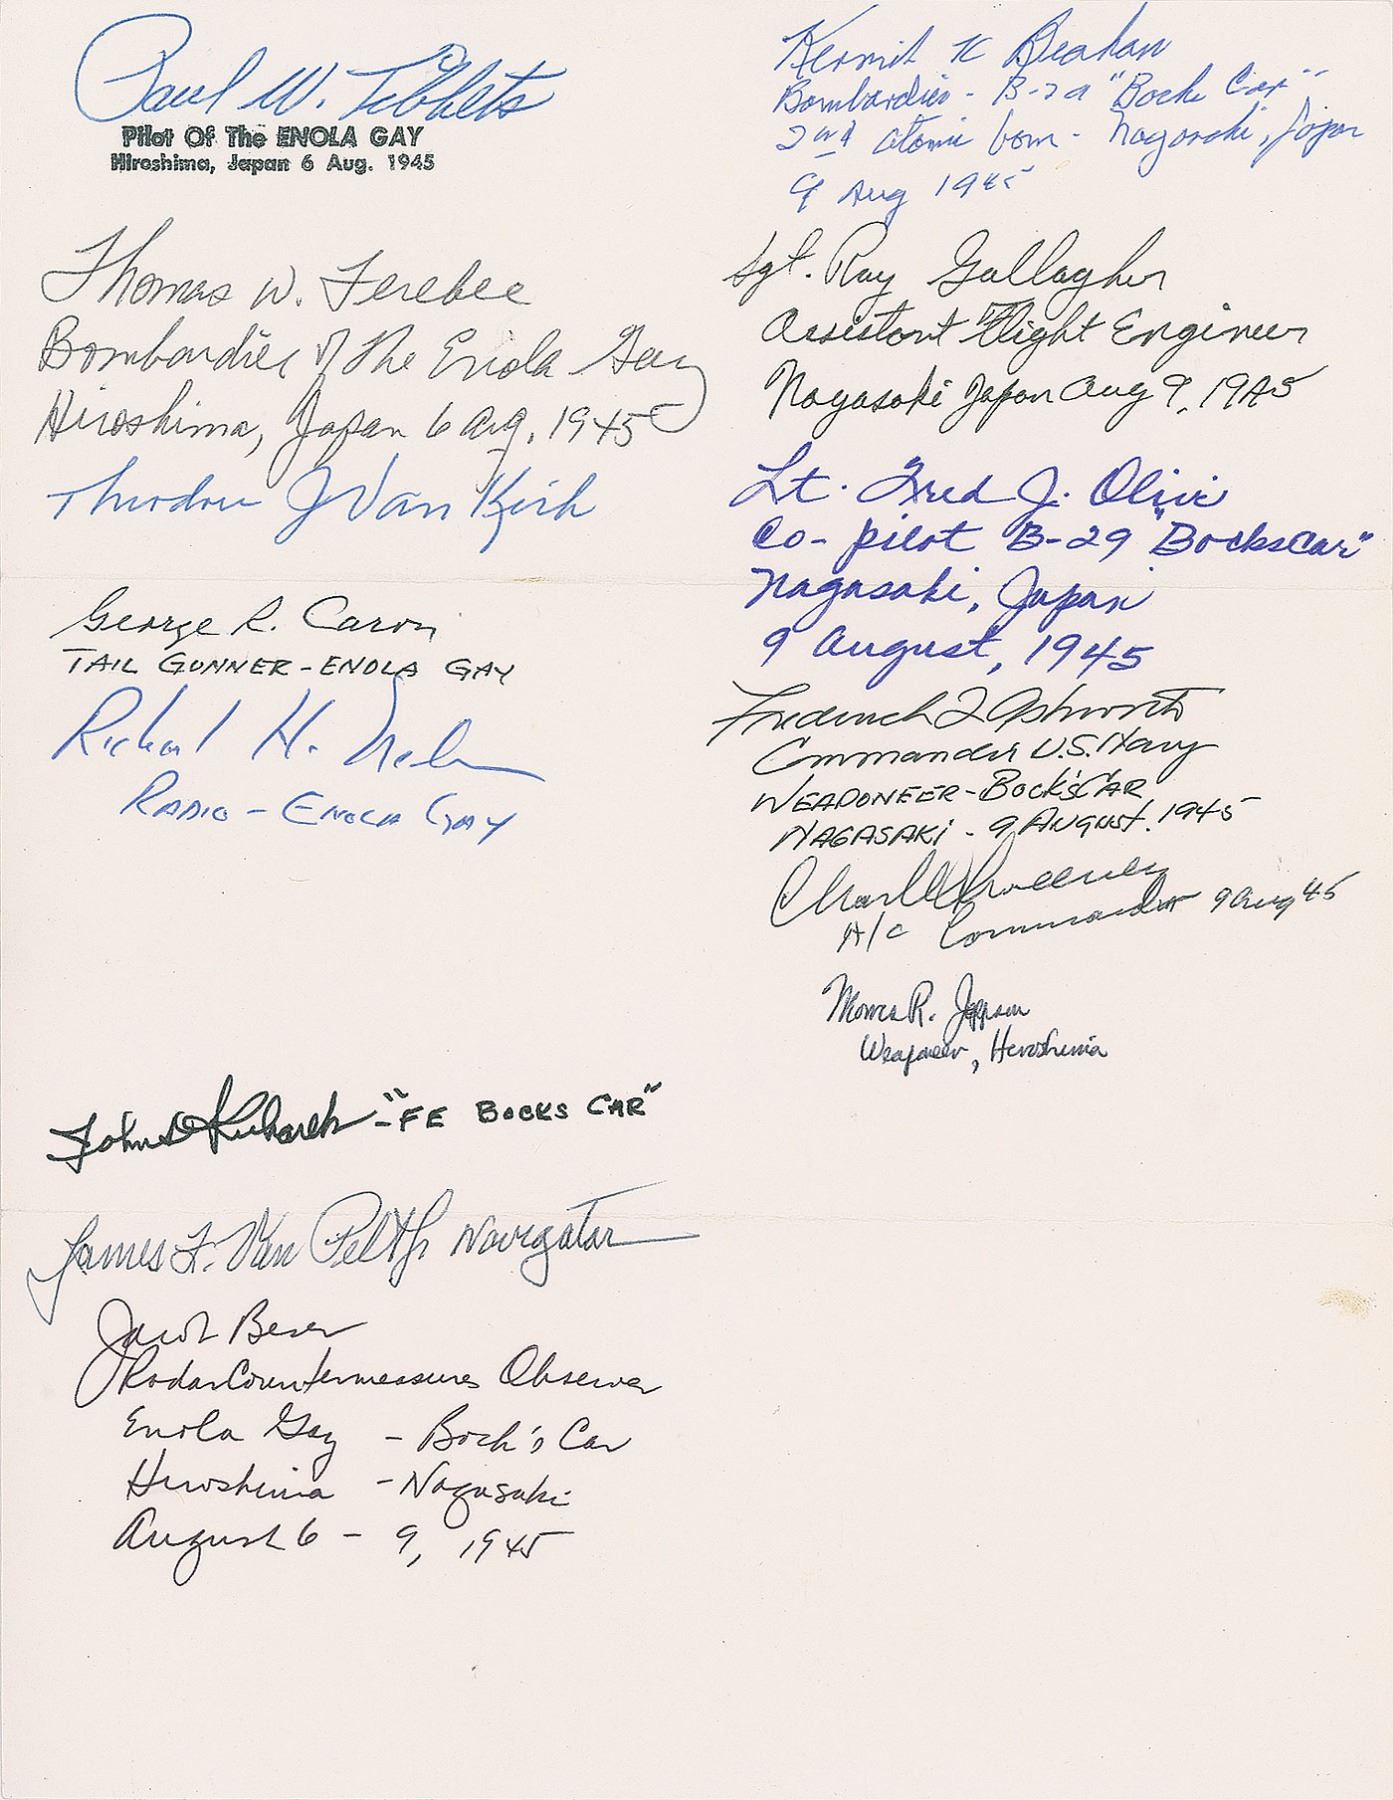 Paul W. Tibbets
Pilot Of The ENOLA GAY
Hiroshima, Japan 6 Aug. 1945
Thomas W. Ferebee
Bombardier of the Enola Gay
Hiroshima, Japan 6 Aug. 1945
Theodore J Van Kirk
George R. Caron
TAIL GUNNER - ENOLA GAY
Richard H. Nelson
RADIO - ENOLA GAY
John D Kuharek - "FE BOCKS CAR"
James F. Van Pelt Jr Navigator
Jacob Beser
Radar Countermeasures Observer
Enola Gay - Bock's Car
Hiroshima - Nagasaki
August 6 - 9, 1945
Kermit K Beahan
Bombardier - B-29 "Bocks Car"
2nd atomic bom - Nagasaki, Japan
9 Aug 1945
Sgt. Ray Gallagher
Assistant Flight Engineer
Nagasaki Japan Aug 9, 1945
Lt. Fred J. Olivi
Co-pilot B-29 "Bockscar"
Nagasaki, Japan
9 August, 1945
Frederick L Ashworth
Commander U.S. Navy
WEAPONEER - BOCK'S CAR
NAGASAKI - 9 AUGUST. 1945
Charles W Sweeney
A/C Commander 9 Aug 45
Morris R. Jeppson
Weaponeer, Hiroshima